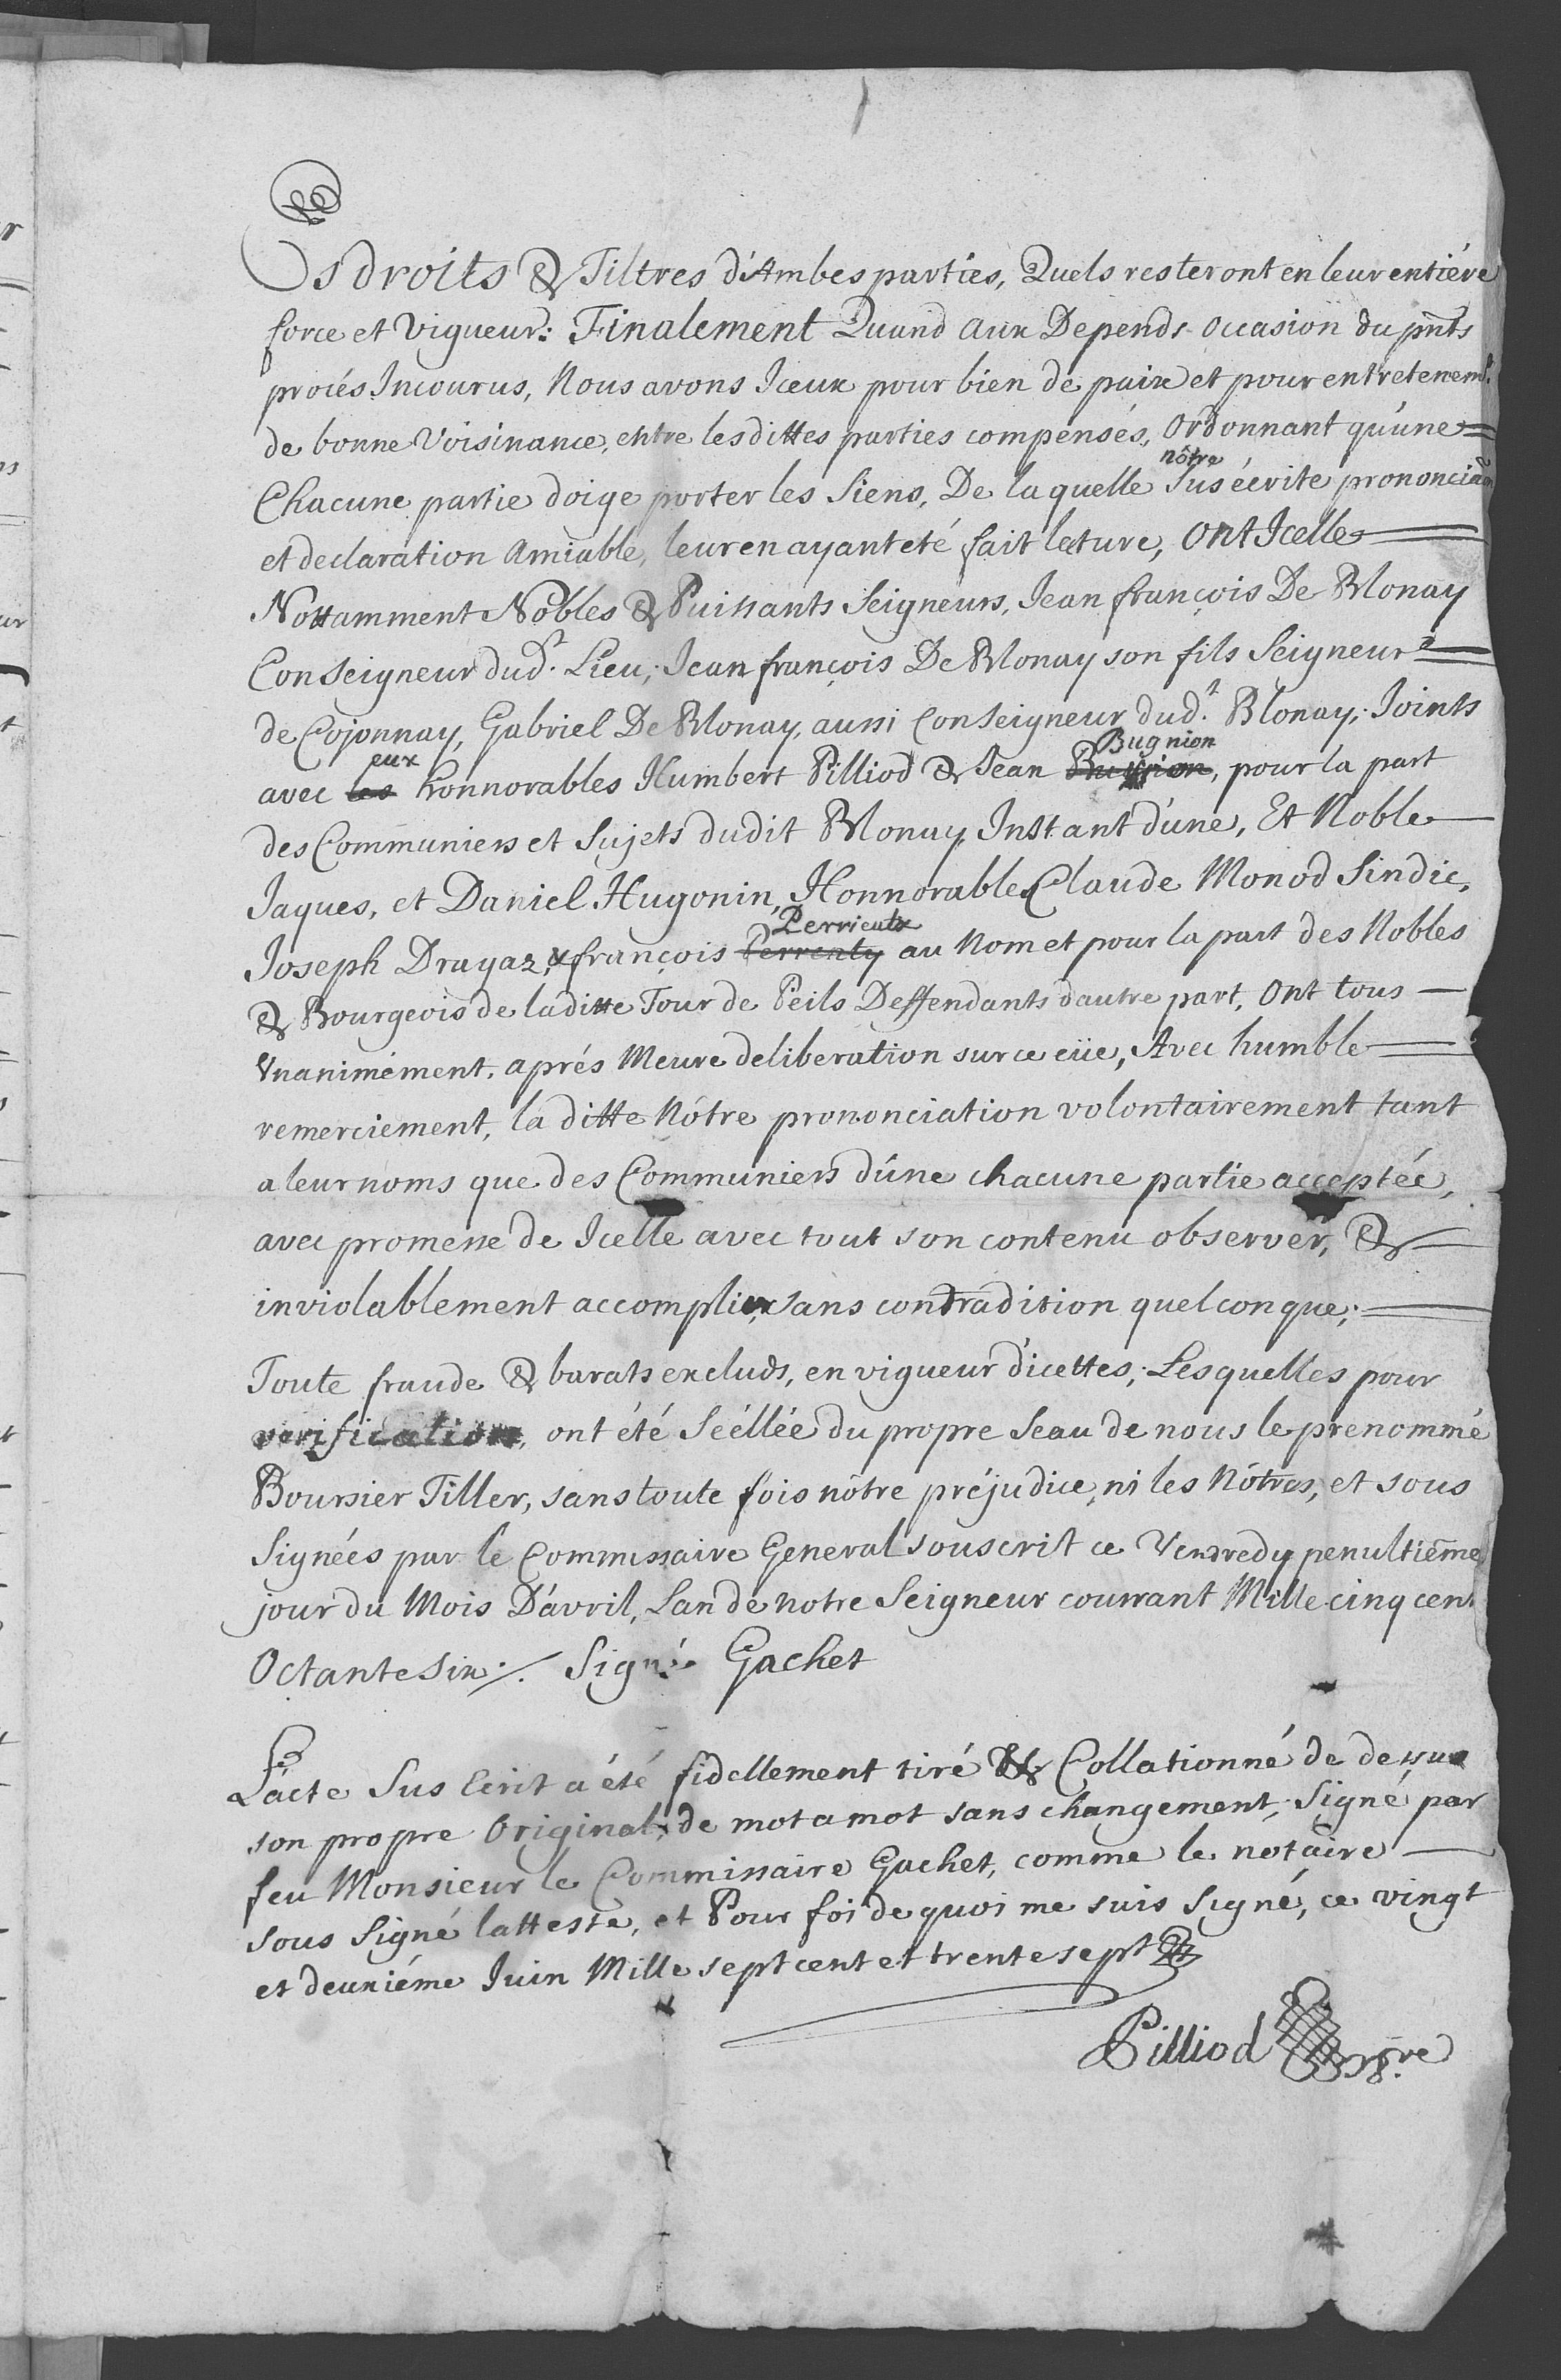 Es droits & Tiltres d'Ambes parties, Quels resteront en leur entiére
force et Vigueur: Finalement Quand aux Depends occasion du pnts
procés Incourus, Nous avons Iceux pour bien de paix et pour entretenemt.
de bonne Voisinance, entre lesdittes parties compensés, Ordonnant qu'une
Chacune partie doige porter les Siens, De laquelle nôtre Sus écrite prononciaõn
et declaration Amiable, leur en ayant eté fait lecture, Ont Icelle
Nottamment Nobles & Puissants Seigneurs, Jean françois De Blonay
Conseigneur dud.t Lieu, Jean françois De Blonay son fils Seigneur
de Cojonnay, Gabriel De Blonay, aussi Conseigneur dud.t Blonay, Joints
avec eux honnorables Humbert Pilliod & Jean Bugnion, pour la part
des Communiers et Sujets dudit Blonay Instant d'une, Et Noble
Jaques, et Daniel Hugonin, Honnorables Claude Monod Sindic,
Joseph Drayaz, & françois Perrenty Perrieulx au Nom et pour la part des Nobles
& Bourgeois de laditte Tour de Peils Deffendants d'autre part, Ont tous
Vnanimément, aprés Meure deliberation sur ce eüe, Avec humble
remerciement, la ditte Nôtre prononciation volontairement tant
a leur noms que des Communiers d'une chacune partie acceptée,
avec promesse de Icelle avec tout son contenu observer, &
inviolablement accomplir, sans contradition quelconque;
Toute fraude & barats excluds, en vigueur d'icettes; Lesquelles pour
verification, ont été Séellée du propre Seau de nous le prenommé
Boursier Tiller, sans toute fois nôtre préjudice, ni les Nôtres, et sous
Signées par le Commissaire General souscrit ce Vendredy penultiéme
jour du Mois D'avril, Lan de notre Seigneur courrant Mille cinq cent
Octante Six ./. Signé Gachet
L'acte Sus Ecrit a été fidellement tiré & Collationné de dessus
son propre Original, de mot a mot sans changement, Signé par
feu Monsieur le Commissaire Gachet, comme le notaire
sous Signé latteste, et Pour foi de quoi me suis Signé, ce vingt
et deuxiéme Juin Mille sept cent et trente sept
Pilliod